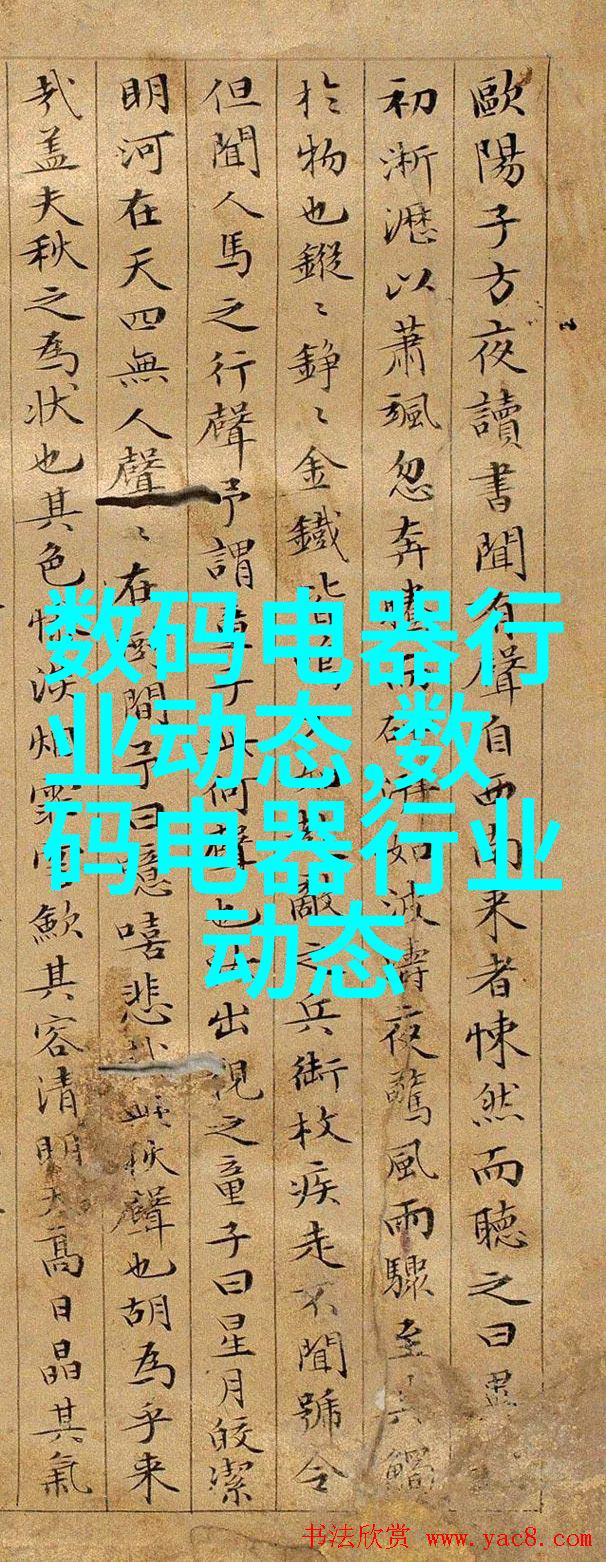 歐陽子方夜讀書聞有聲自西南来者悚然而聽之曰異
初淅瀝以蕭颯忽奔騰而砰湃如波濤夜驚風雨驟至其觸
於物也鏦〻錚〻金鐵皆鳴敵之兵銜枚疾走不聞號令
但聞人馬之行聲予謂童子此何聲也出視之童子曰星月皎潔
明河在天四無人聲〻在樹間予曰噫嘻悲哉秋聲也胡為乎来
哉盖夫秋之為狀也其色慘淡烟霏雲歛其容清明天高日晶其氣
数码电器行
业动态,数
码电器行业
动态
书法欣赏 www.yac8.com